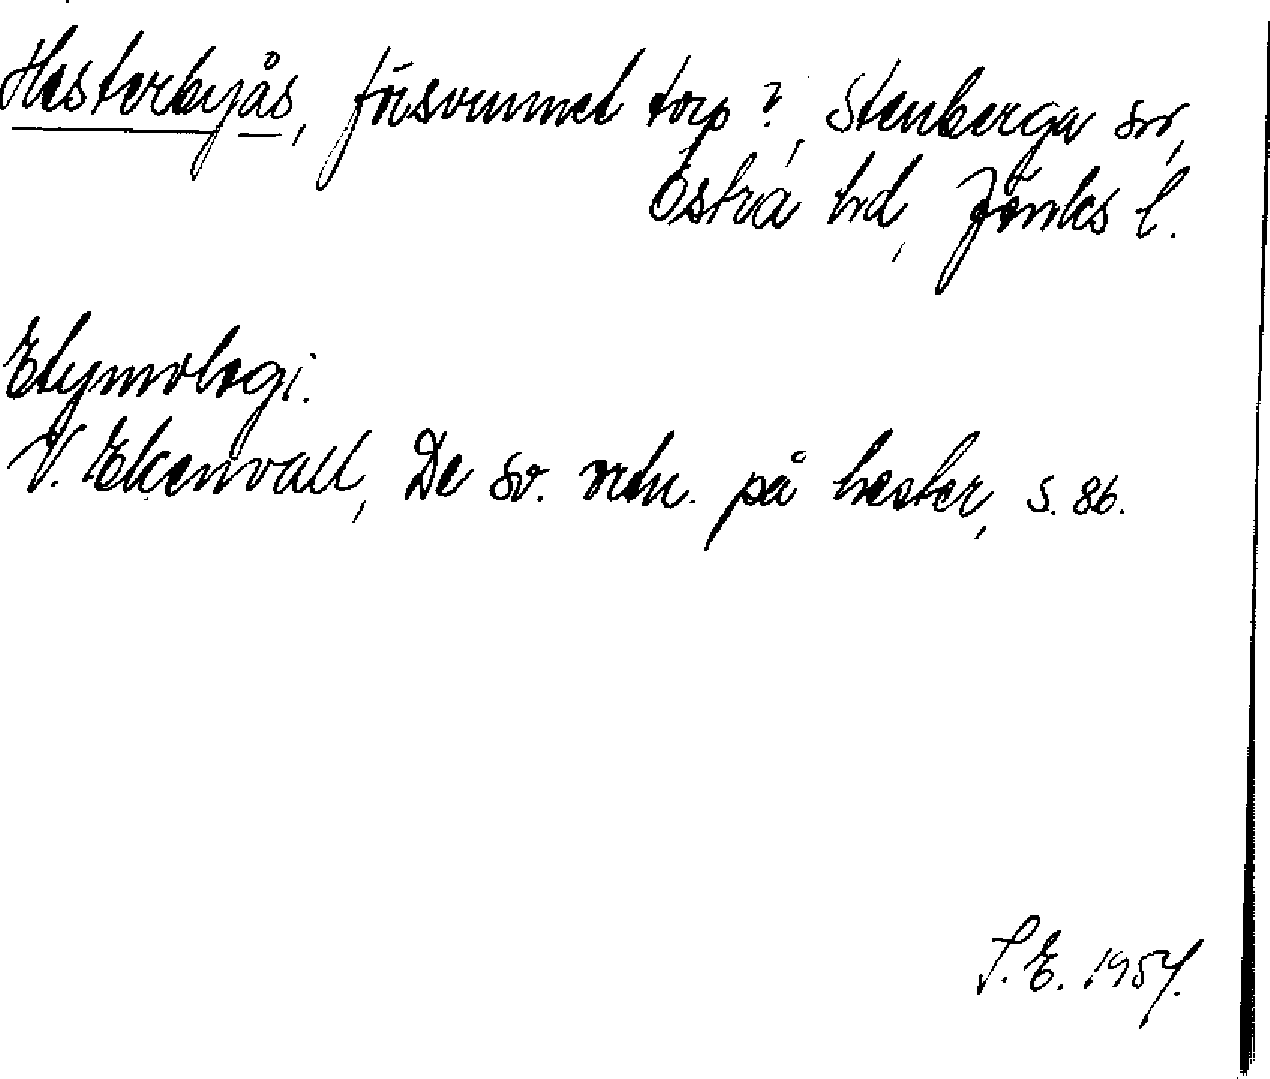 Hesterbyås, försvunnet torp?, Stenberga sn,
Östra hd, Jönks l.
Etymologi.
V. Ekenvall, De sv. ortn. på hester, s. 86.
S.E. 1957.